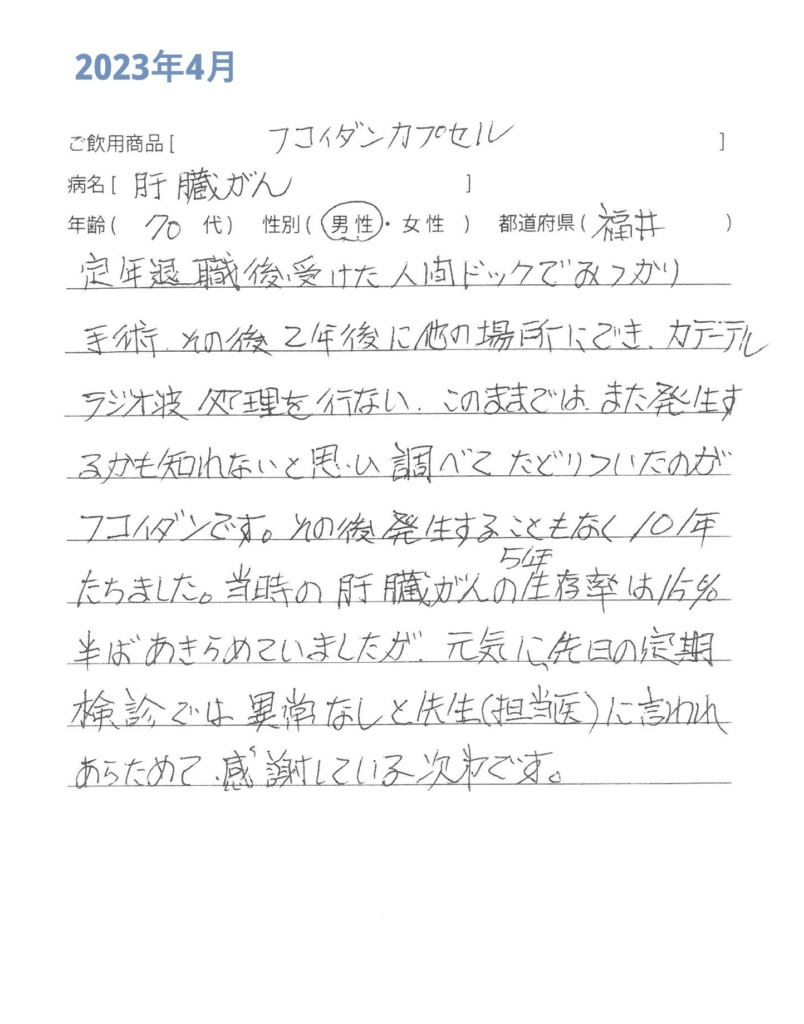 2023年4月
ご飲用商品[ フコイダンカプセル ]
病名[ 肝臓がん ]
年齢( 70 代) 性別( 男性・女性 ) 都道府県( 福井 )
定年退職後、受けた人間ドックでみつかり
手術、その後2年後に他の場所にでき、カテーテル
ラジオ波処理を行ない、このままでは、また発生す
るかも知れないと思い調べてたどりついたのが
フコイダンです。その後発生することもなく10年
たちました。当時の肝臓がんの5年生存率は15%
半ばあきらめていましたが、元気に、先日の定期
検診では異常なしと先生(担当医)に言われ
あらためて、感謝している次第です。